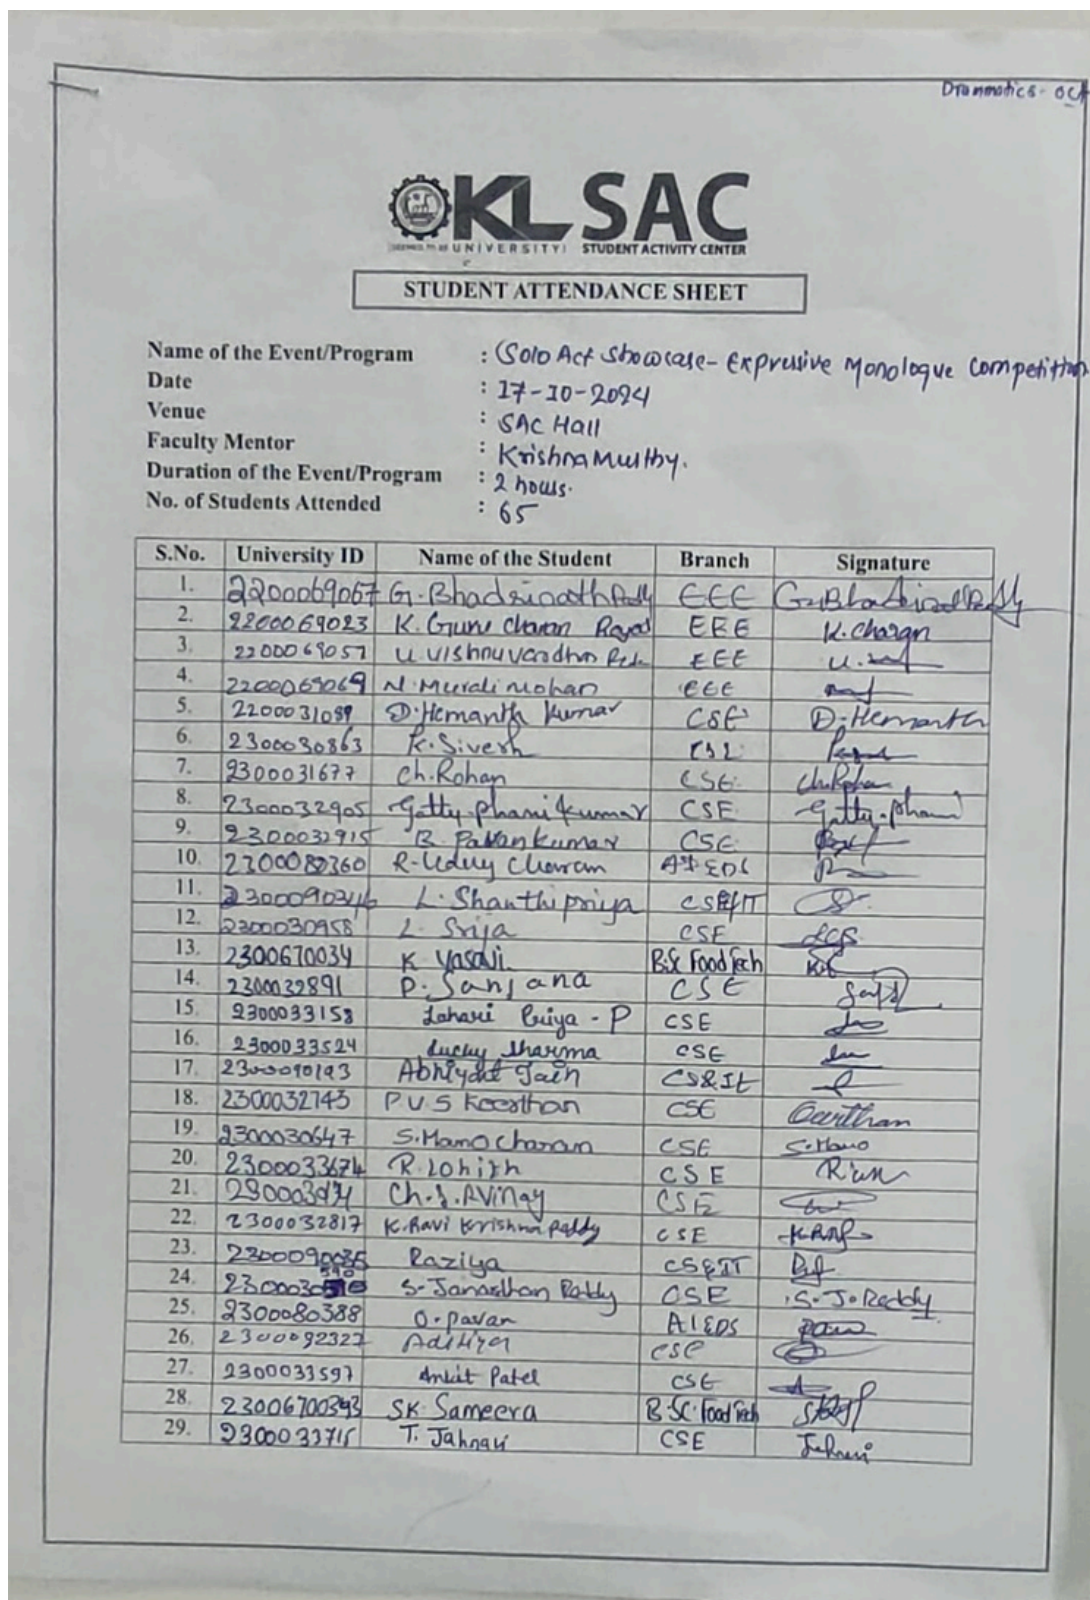 Drammatics - OCT
KL SAC
(DEEMED TO BE UNIVERSITY) STUDENT ACTIVITY CENTER
STUDENT ATTENDANCE SHEET
Name of the Event/Program : Solo Act Showcase - Expressive Monologue Competition
Date : 17-10-2024
Venue : SAC Hall
Faculty Mentor : Krishna Murthy.
Duration of the Event/Program : 2 hours.
No. of Students Attended : 65
S.No. University ID Name of the Student Branch Signature
1. 2200069067 G. Bhadrinath Reddy EEE G. Bhadrinath Reddy
2. 2200069023 K. Guru Charan EEE K. Charan
3. 2200069057 U. Vishnuvardhan EEE
4. 2200069069 N. Murali Mohan EEE
5. 2200031089 D. Hemanth Kumar CSE D. Hemanth
6. 2300030863 K. Sivesh CSE
7. 2300031677 Ch. Rohan CSE Ch. Rohan
8. 2300032905 Gatty. phani kumar CSE Gatty. phani
9. 2300032915 B. Pavan kumar CSE
10. 2300080360 R. Uday Charan AI&DS
11. L. Shanthi priya CS&IT
12. 2300030958 L. Srija CSE
13. 2300670034 K Yasavi B.Sc Food Tech
14. 2300032891 P. Sanjana CSE
15. 2300033158 Lahari Priya - P CSE
16. 2300033524 Lucky Sharma CSE
17. 2300090193 Abhiydat Jain CS&It
18. 2300032743 P.V.S Keerthan CSE Keerthan
19. 2300030647 S. Mano Charan CSE S. Mano
20. 2300033674 R. Lohith CSE
21. Ch. S. R Vinay CSE
22. 2300032817 K. Ravi Krishna Reddy CSE
23. 2300090035 Raziya CS&IT
24. S. Janardhan Reddy CSE S. J. Reddy
25. 2300080388 O. pavan AI&DS
26. 2300092327 Adithya CSE
27. 2300033597 Ankit Patel CSE
28. 23006700393 SK. Sameera B.SC. Food Tech
29. 2300033715 T. Jahnavi CSE Jahnavi